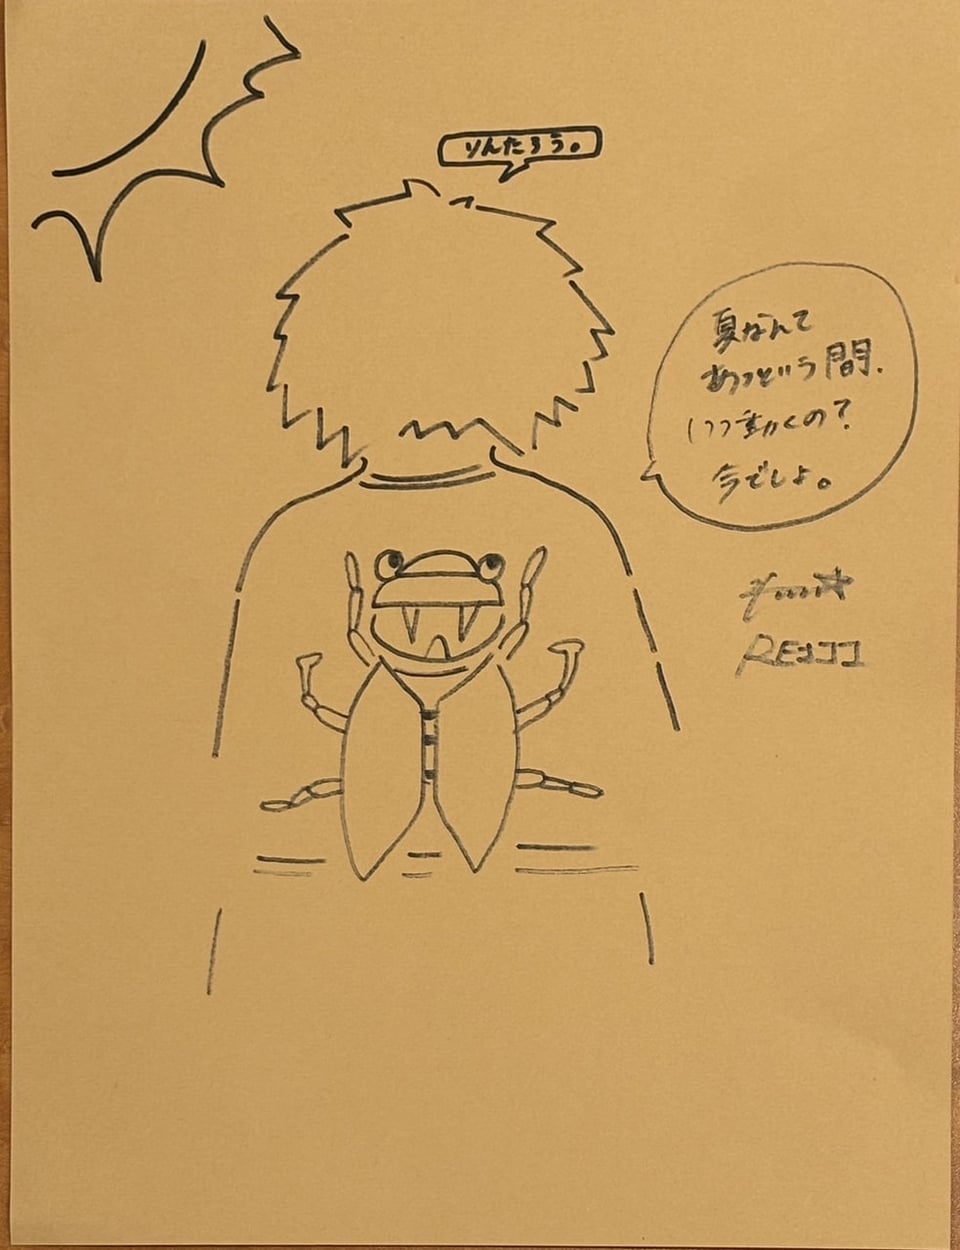 りんたろう。
夏なんて
あっという間.
いつ動くの?
今でしょ。